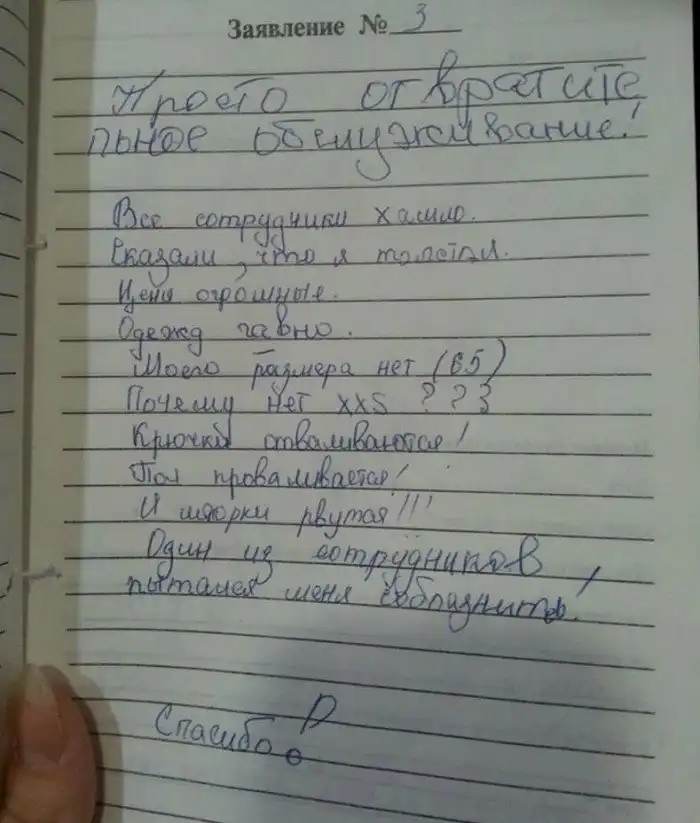 Заявление № 3
Просто отвратите
льное обслуживание!
Все сотрудники хамло.
Сказали, что я толстая.
Цены огромные.
Одежд гавно.
Моего размера нет (65)
Почему нет XXS ???
Крючки отваливаются!
Пол проваливается!
И шторки рвутся!!!
Один из сотрудников
пытался меня соблазнить!
Спасибо